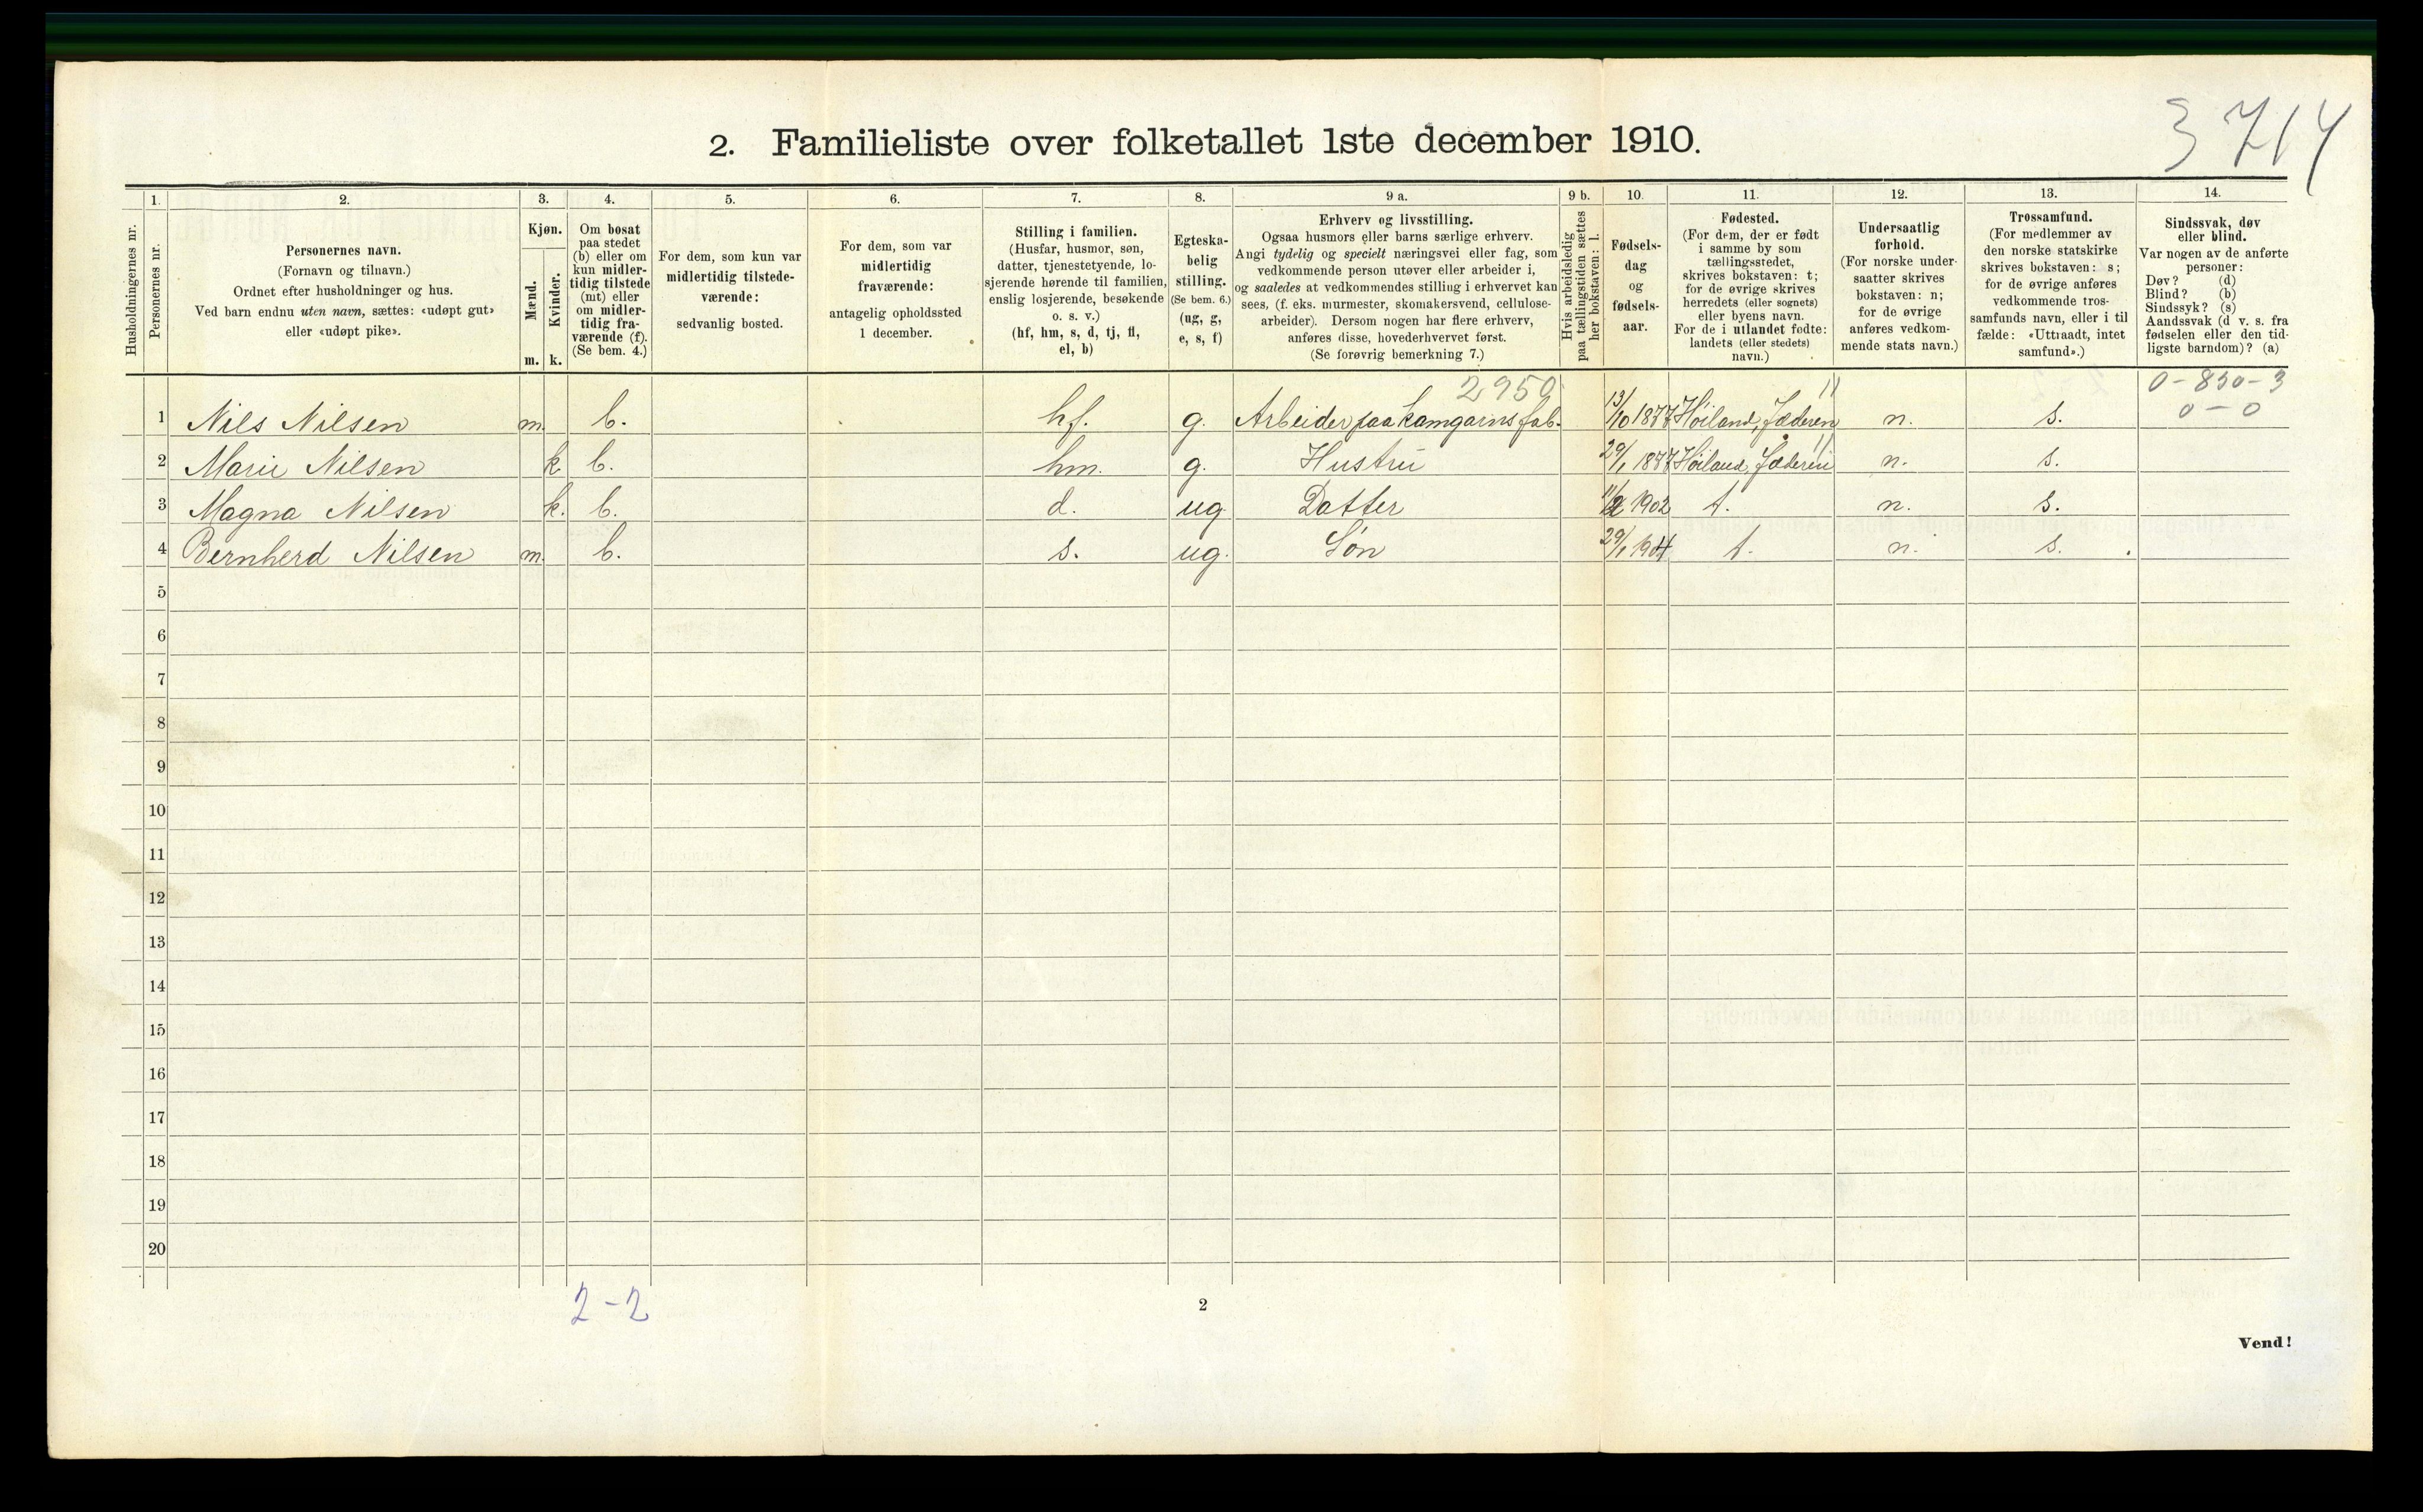 3714
2. Familieliste over folketallet 1ste december 1910.
Husholdningernes nr.
1. Personernes nr.
2.
Personernes navn.
(Fornavn og tilnavn.)
Ordnet efter husholdninger og hus.
Ved barn endnu uten navn, sættes: «udøpt gut»
eller «udøpt pike».
3.
Kjøn.
Mænd.
Kvinder.
m. k.
4.
Om bosat
paa stedet
(b) eller om
kun midler-
tidig tilstede
(mt) eller
om midler-
tidig fra-
værende (f).
(Se bem. 4.)
5.
For dem, som kun var
midlertidig tilstede-
værende:
sedvanlig bosted.
6.
For dem, som var
midlertidig
fraværende:
antagelig opholdssted
1 december.
7.
Stilling i familien.
(Husfar, husmor, søn,
datter, tjenestetyende, lo-
sjerende hørende til familien,
enslig losjerende, besøkende
o. s. v.)
(hf, hm, s, d, tj, fl,
el, b)
8.
Egteska-
belig
stilling.
(Se bem. 6.)
(ug, g,
e, s, f)
9 a.
Erhverv og livsstilling.
Ogsaa husmors eller barns særlige erhverv.
Angi tydelig og specielt næringsvei eller fag, som
vedkommende person utøver eller arbeider i,
og saaledes at vedkommendes stilling i erhvervet kan
sees, (f. eks. murmester, skomakersvend, cellulose-
arbeider). Dersom nogen har flere erhverv,
anføres disse, hovederhvervet først.
(Se forøvrig bemerkning 7.)
9 b.
Hvis arbeidsledig
paa tællingstiden sættes
her bokstaven: l.
10.
Fødsels-
dag
og
fødsels-
aar.
11.
Fødested.
(For dem, der er født
i samme by som
tællingsstedet,
skrives bokstaven: t;
for de øvrige skrives
herredets (eller sognets)
eller byens navn.
For de i utlandet fødte:
landets (eller stedets)
navn.)
12.
Undersaatlig
forhold.
(For norske under-
saatter skrives
bokstaven: n;
for de øvrige
anføres vedkom-
mende stats navn.)
13.
Trossamfund.
(For medlemmer av
den norske statskirke
skrives bokstaven: s;
for de øvrige anføres
vedkommende tros-
samfunds navn, eller i til
fælde: «Uttraadt, intet
samfund».)
14.
Sindssvak, døv
eller blind.
Var nogen av de anførte
personer:
Døv? (d)
Blind? (b)
Sindssyk? (s)
Aandssvak (d v. s. fra
fødselen eller den tid-
ligste barndom)? (a)
2950 11 0-830-3
0-0
1 Nils Nilsen m. b. hf. g. Arbeider paa Kamgarns fab. 13/10 1877 Høiland, Jæderen n. s.
11
2 Marie Nilsen k. b. hm. g. Hustru 29/1 1877 Høiland, Jæderen n. s.
3 Magna Nilsen k. b. d. ug. Datter 1902 t. n. s.
4 Bernherd Nilsen m. b. s. ug. Søn 29/1 1904 t. n. s.
5
6
7
8
9
10
11
12
13
14
15
16
17
18
19
20
2-2
2
Vend!